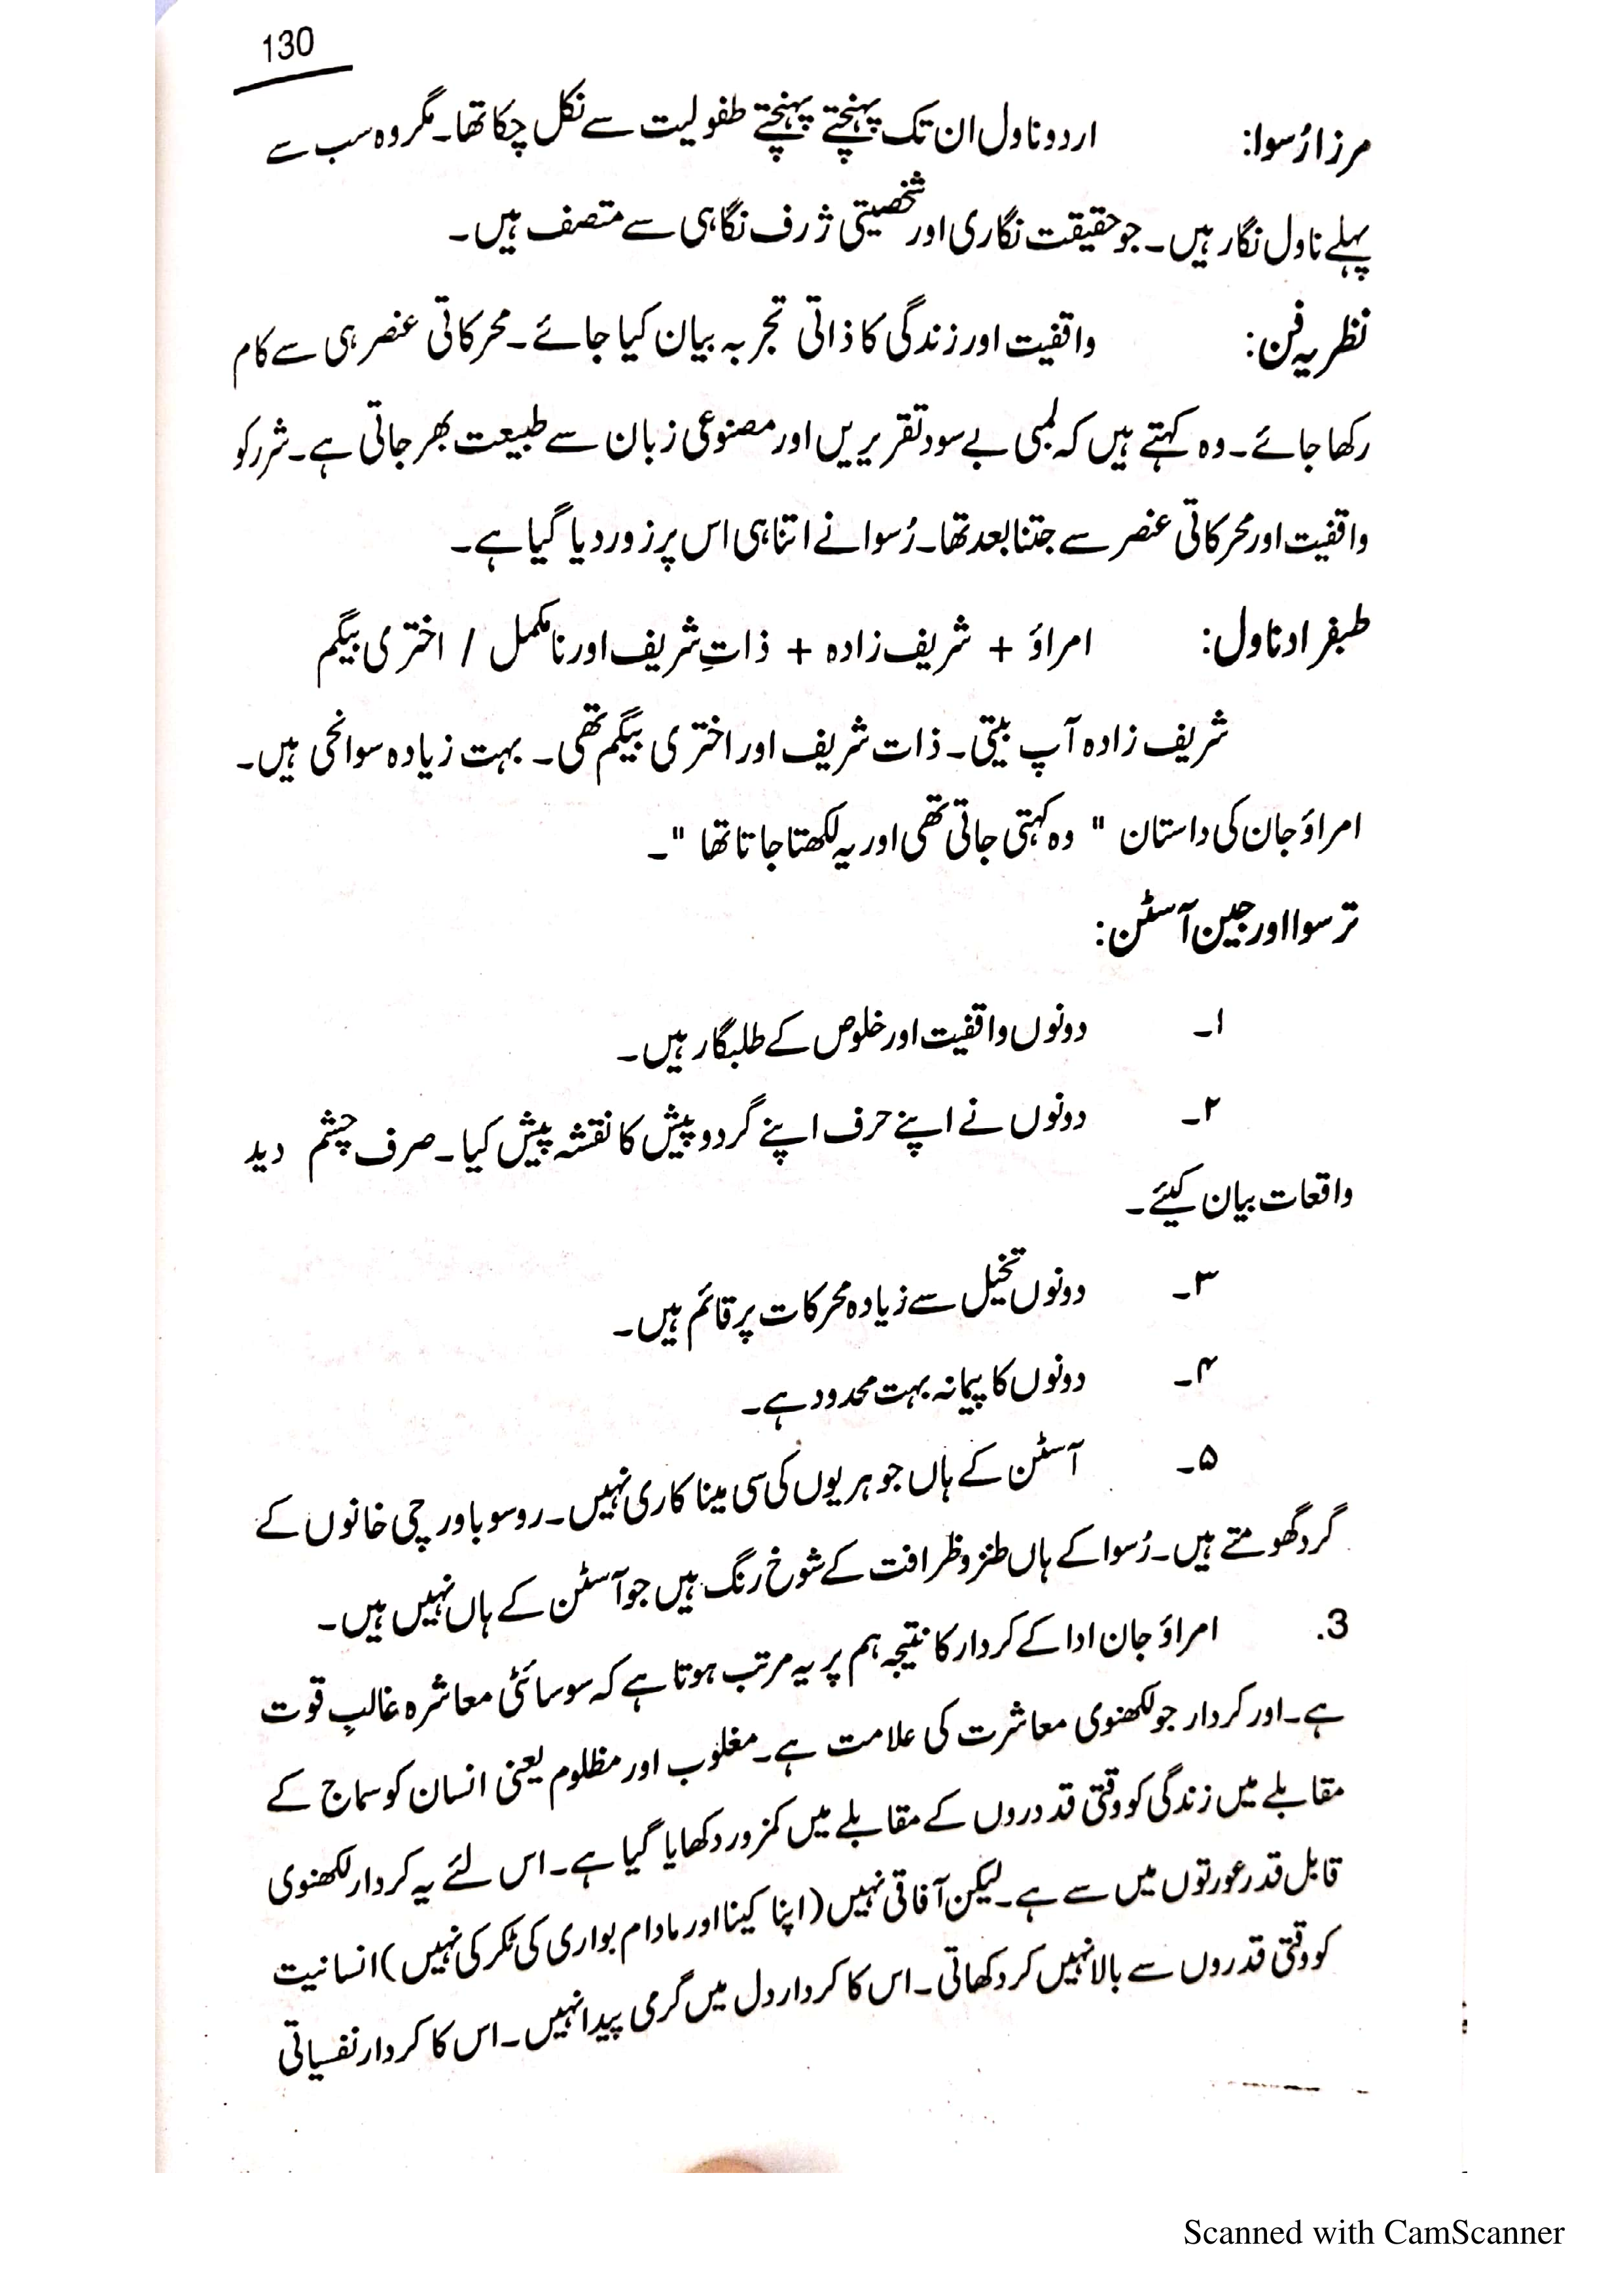 130
مرزا رُسوا: اردو ناول ان تک پہنچتے پہنچتے طفولیت سے نکل چکا تھا۔ مگر وہ سب سے
پہلے ناول نگار ہیں۔ جو حقیقت نگاری اور شخصیتی ژرف نگاہی سے متصف ہیں۔
نظریہ فن: واقفیت اور زندگی کا ذاتی تجربہ بیان کیا جائے۔ محرکاتی عنصر ہی سے کام
رکھا جائے۔ وہ کہتے ہیں کہ لمبی بے سود تقریریں اور مصنوعی زبان سے طبیعت بھر جاتی ہے۔ شرر کو
واقفیت اور محرکاتی عنصر سے جتنا بعد تھا۔ رُسوا نے اتنا ہی اس پر زور دیا گیا ہے۔
طبفراد ناول: امراؤ + شریف زادہ + ذاتِ شریف اور نامکمل / اختری بیگم
شریف زادہ آپ بیتی۔ ذات شریف اور اختری بیگم تھی۔ بہت زیادہ سوانحی ہیں۔
امراؤ جان کی داستان " وہ کہتی جاتی تھی اور یہ لکھتا جاتا تھا "۔
ترسوا اور جین آسٹن:
۱۔ دونوں واقفیت اور خلوص کے طلبگار ہیں۔
۲۔ دونوں نے اپنے حرف اپنے گردوپیش کا نقشہ پیش کیا۔ صرف چشم دید
واقعات بیان کیئے۔
۳۔ دونوں تخیل سے زیادہ محرکات پر قائم ہیں۔
۴۔ دونوں کا پیمانہ بہت محدود ہے۔
۵۔ آسٹن کے ہاں جوہریوں کی سی مینا کاری نہیں۔ روسو باورچی خانوں کے
گرد گھومتے ہیں۔ رُسوا کے ہاں طنز و ظرافت کے شوخ رنگ ہیں جو آسٹن کے ہاں نہیں ہیں۔
3. امراؤ جان ادا کے کردار کا نتیجہ ہم پر یہ مرتب ہوتا ہے کہ سوسائٹی معاشرہ غالب قوت
ہے۔ اور کردار جو لکھنوی معاشرت کی علامت ہے۔ مغلوب اور مظلوم یعنی انسان کو سماج کے
مقابلے میں زندگی کو وقتی قددروں کے مقابلے میں کمزور دکھایا گیا ہے۔ اس لئے یہ کردار لکھنوی
قابل قدر عورتوں میں سے ہے۔ لیکن آفاقی نہیں (اپنا کینا اور مادام بواری کی ٹکر کی نہیں) انسانیت
کو وقتی قدروں سے بالا نہیں کر دکھاتی۔ اس کا کردار دل میں گرمی پیدا نہیں۔ اس کا کردار نفسیاتی
Scanned with CamScanner